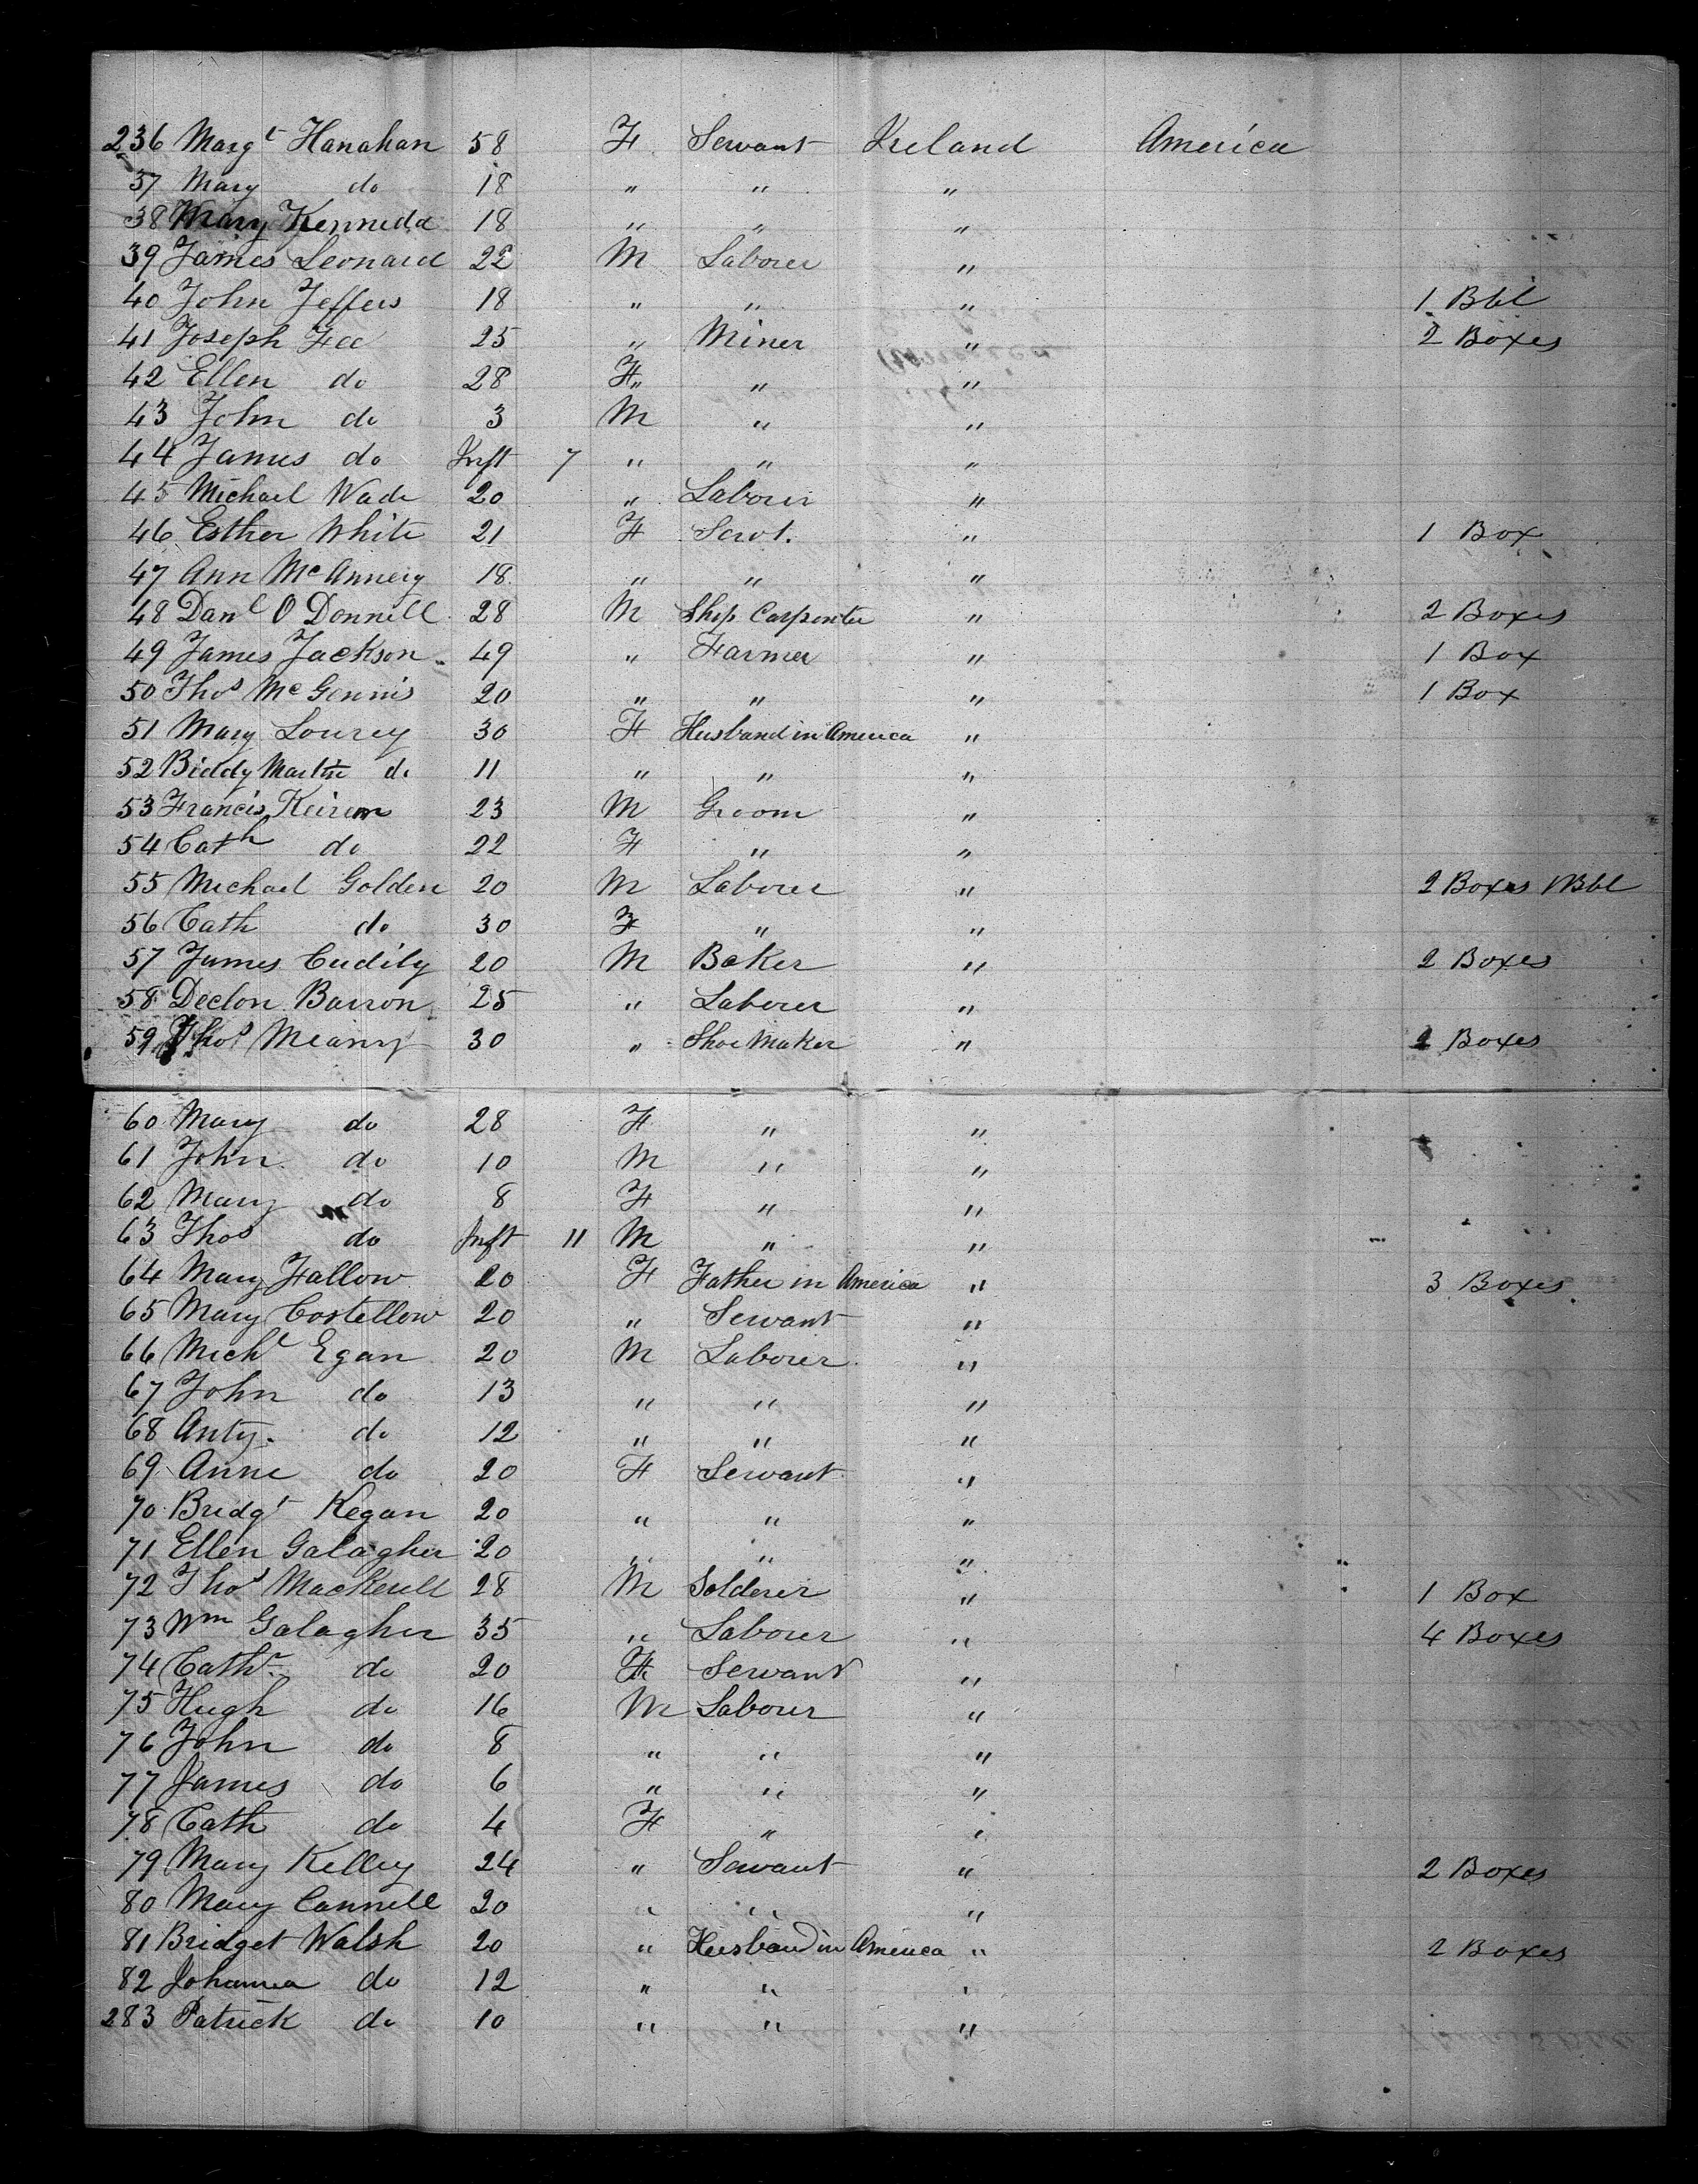 236 Margt Hanahan 58 F Servant Ireland America
37 Mary do 18 " " "
38 Mary Kenneda 18 " " "
39 James Leonard 22 M Laborer "
40 John Jeffers 18 " " " 1 Bbl
41 Joseph Fee 25 " Miner " 2 Boxes
42 Ellen do 28 F " "
43 John do 3 M " "
44 James do Inft 7 " " "
45 Michael Wade 20 " Laborer "
46 Esther White 21 F Servt. " 1 Box
47 Ann McAnnery 18 " " "
48 Danl O Donnell 28 M Ship Carpenter " 2 Boxes
49 James Jackson 49 " Farmer " 1 Box
50 Thos McGennis 20 " " " 1 Box
51 Mary Lourey 30 F Husband in America "
52 Biddy Martin do 11 " " "
53 Francis Keiren 23 M Groom "
54 Cath do 22 F " "
55 Michael Golden 20 M Laborer " 2 Boxes 1 Bbl
56 Cath do 30 F " "
57 James Cudily 20 M Baker " 2 Boxes
58 Declon Barron 25 " Laborer "
59 Thos Meany 30 " Shoe Maker " 2 Boxes
60 Mary do 28 F " "
61 John do 10 M " "
62 Mary do 8 F " "
63 Thos do Inft 11 M " "
64 Mary Fallow 20 F Father in America " 3 Boxes
65 Mary Costellow 20 " Servant "
66 Michl Egan 20 M Laborer "
67 John do 13 " " "
68 Anty. do 12 " " "
69 Anne do 20 F Servant "
70 Bridgt Kegan 20 " " "
71 Ellen Galagher 20 " " "
72 Thos Mackerell 28 M Solderer " 1 Box
73 Wm Galagher 35 " Laborer " 4 Boxes
74 Cathr do 20 F Servant "
75 Hugh do 16 M Laborer "
76 John do 8 " " "
77 James do 6 " " "
78 Cath do 4 F " "
79 Mary Kelley 24 " Servant " 2 Boxes
80 Mary Cannell 20 " " "
81 Bridget Walsh 20 " Husband in America " 2 Boxes
82 Johanna do 12 " " "
283 Patrick do 10 " " "